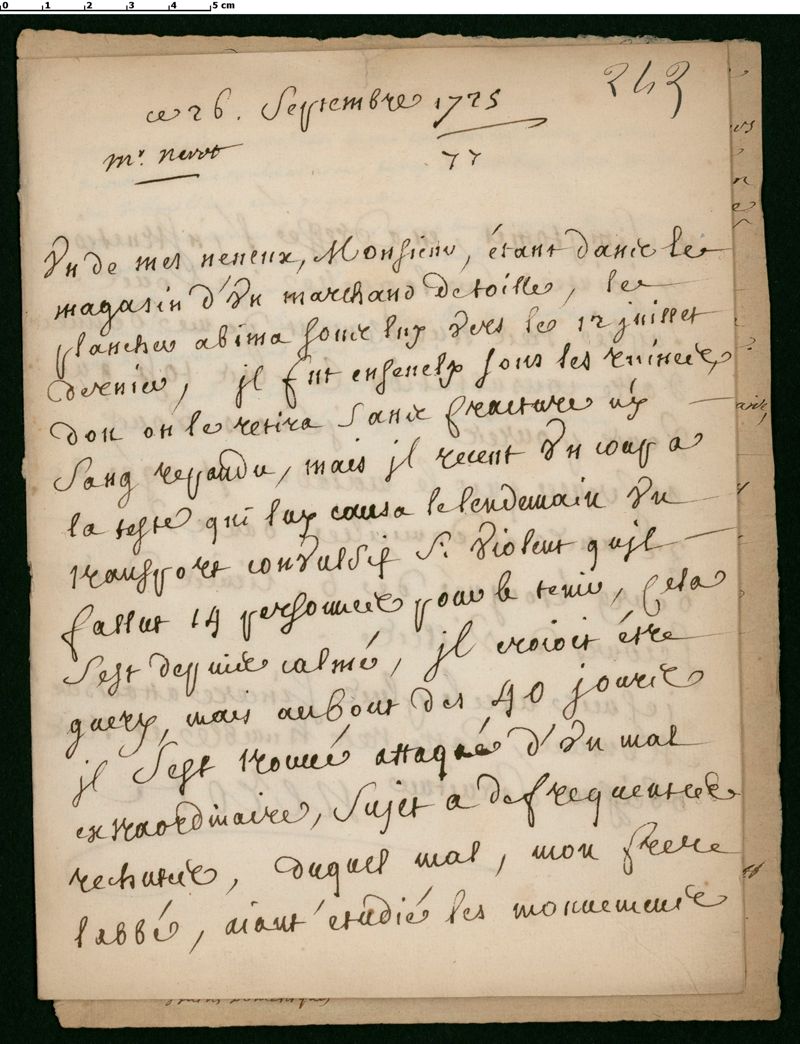 243
ce 26. Septembre 1725
77
Mr. Nerot
Un de mes neueux, Monsieur, étant dans le
magasin d'Un marchand de toille, le
plancher abima sous luy Vers le 12 juillet
dernier, jl fut enseuely sous les ruines,
don on le retira Sans fracture ny
Sang repandu, mais jl receut Un coup a
la teste qui luy causa le lendemain Un
transport conVulsif Si Violent qu'jl
fallut 14 personnes pour le tenir, Cela
S'est depuis calmé, jl croioit étre
guery, mais au bout des 40 jours
jl S'est trouué attaqué d'Un mal
extraordinaire, Sujet a de frequentes
rechutes, duquel mal, mon frere
l'abbé, aiant étudié les mouuemens